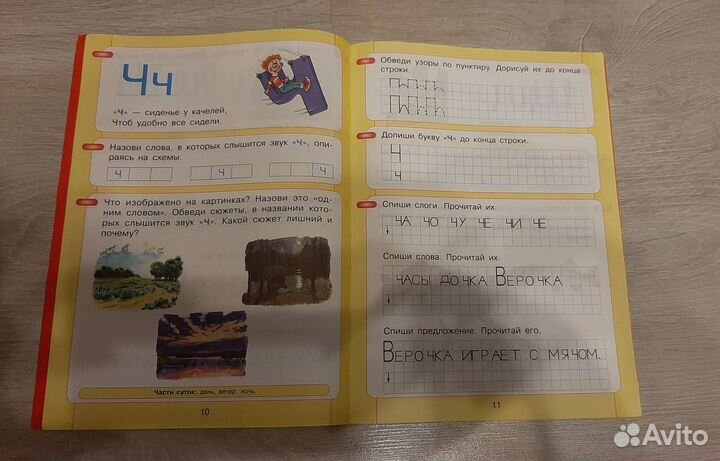 Чч
«Ч» — сиденье у качелей,
Чтоб удобно все сидели.
Назови слова, в которых слышится звук «Ч», опи-
раясь на схемы.
Ч Ч Ч
Что изображено на картинках? Назови это «од-
ним словом». Обведи сюжеты, в названии кото-
рых слышится звук «Ч». Какой сюжет лишний и
почему?
Части суток: день, вечер, ночь.
10
Обведи узоры по пунктиру. Дорисуй их до конца
строки.
Допиши букву «Ч» до конца строки.
Ч
ч
Спиши слоги. Прочитай их.
ЧА ЧО ЧУ ЧЕ ЧИ ЧЕ
Спиши слова. Прочитай их.
ЧАСЫ ДОЧКА ВЕРОЧКА
Спиши предложение. Прочитай его.
ВЕРОЧКА ИГРАЕТ С МЯЧОМ.
11
Avito